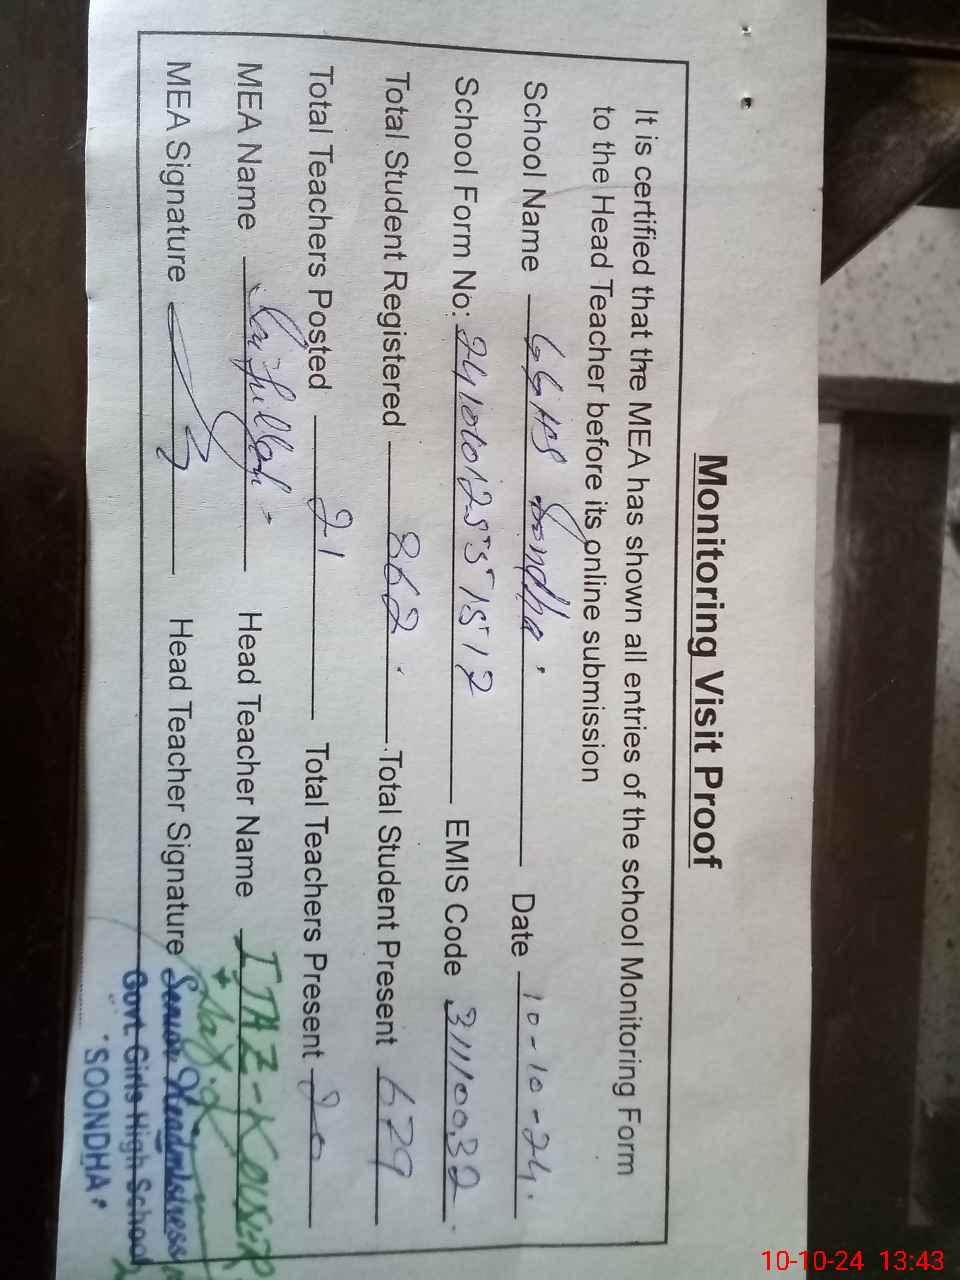 Monitoring Visit Proof
It is certified that the MEA has shown all entries of the school Monitoring Form
to the Head Teacher before its online submission
School Name GGHS Sondha Date 10-10-24.
School Form No: EMIS Code 31110032
Total Student Registered 862 Total Student Present 679
Total Teachers Posted 21 Total Teachers Present 20
MEA Name Head Teacher Name
MEA Signature Head Teacher Signature
Senior Headmistress
Govt. Girls High School
SOONDHA
10-10-24 13:43